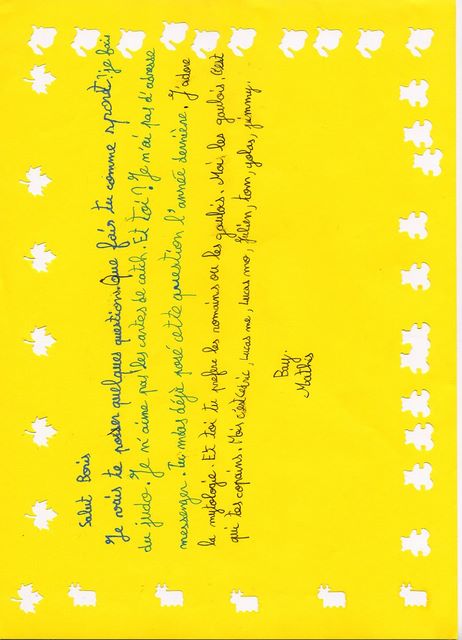 Salut Boris
Je vais te posser quelques questions. Que fais tu comme sport? je fais
du judo. Je n'aime pas les cartes de catch. Et toi? Je n'ai pas d'adresse
messenger. Tu m'as déjà posé cette question l'année dernière. J'adore
la mytologie. Et toi tu préfère les romains ou les gaulois. Moi, les gaulois. C'est
qui tes copains. Moi c'est Cédric, Lucas me, Lucas mo, Julien, tom, yolas, jimmy.
Bay.
Mathis